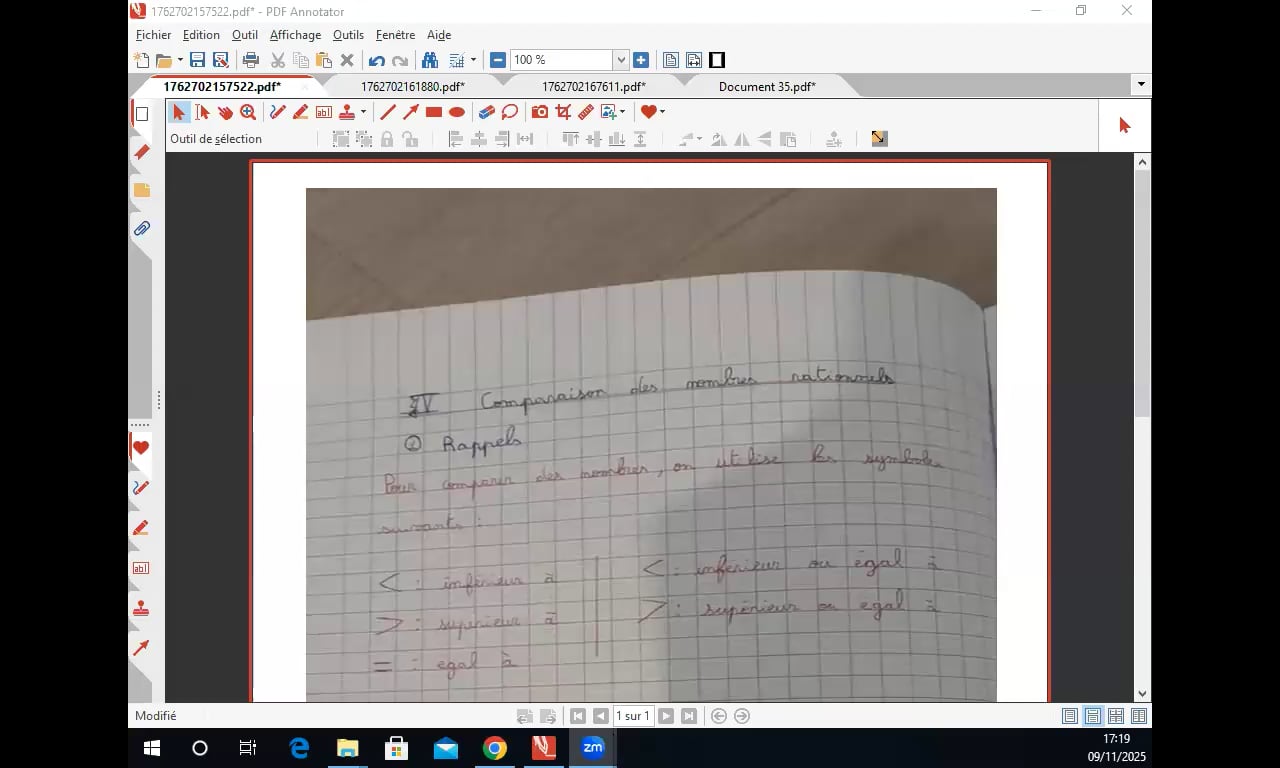 1762702157522.pdf* - PDF Annotator
Fichier Edition Outil Affichage Outils Fenêtre Aide
100 %
1762702157522.pdf* 1762702161880.pdf* 1762702167611.pdf* Document 35.pdf*
Outil de sélection
IV Comparaison des nombres rationnels
① Rappels
Pour comparer des nombres, on utilise les symboles
suivants :
< : inférieur à
> : supérieur à
= : egal à
< : inférieur ou égal à
> : supérieur ou egal à
Modifié
1 sur 1
zm
17:19
09/11/2025